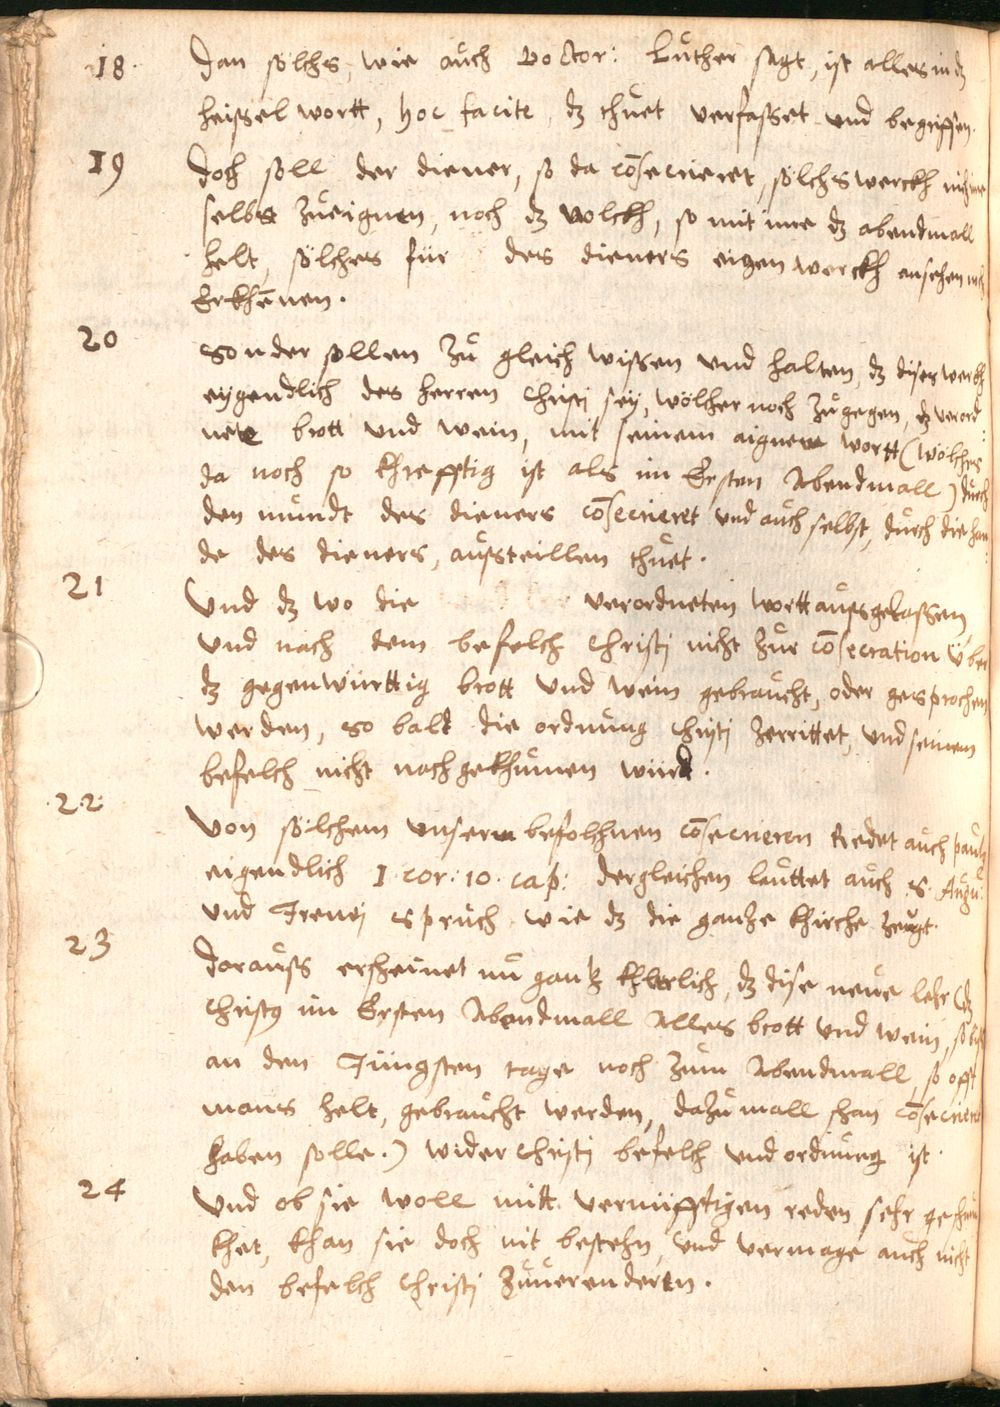 18. Dan sölchs, wie auch Doctor: Luther sagt, ist alles in dz
heissel wortt, hoc facite, dz thuet verfasset und begriffen.
19 Doch soll der diener, so da cōsecrieret, sölchs werckh nicht ime
selbst zueignen, noch dz volckh, so mit ime dz abendmall
helt, sölches für des dieners eigen werckh ansehen
Erkhēnen.
20 Sonder sollen zu gleich wissen und halten, dz diser werckh
eygendlich des Herren Christi sey, wölcher noch zugegen, dz verord
nete brott und wein, mit seinem aignem wortt (wölches
da noch so khrefftig ist als im Ersten Abendmall) durch
den mundt des dieners cōsecrieret und auch selbst, durch die hän:
de des dieners, ausstaillen thuet.
21 Und dz wo die verordneten wortt aussgelassen
und nach dem befelch Christi nicht zur cōsecration über
dz gegenwürttig brott und wein gebraucht, oder gesprochen
werden, so balt die ordnung Christi zerrittet, und seinem
befelch nicht nachgekhumen würd.
22. Von sölchem unserm befolchnen cōsecrieren Redet auch paulus
eigendlich 1. cor: 10. cap: dergleichen lauttet auch S. Augu:
und Irenej spruch wie dz die ganze khirche zeugt.
23 Darauss ersheinet nu gantz khlerlich, dz dise neue lehr (dz
Christus im Ersten Abendmall Alles brott und wein, so biss
an den Jüngsten tage noch zum Abendmall, so offt
mans helt, gebraucht werden, dazumall shan cōsecriert
haben solle.) wider Christi befelch und ordnung ist.
24 Und ob sie woll mitt vernüfftigen reden sehr geshmü
khet, khan sie doch nit bestehn, und vermage auch nicht
den befelch Christi zuuerenderen.